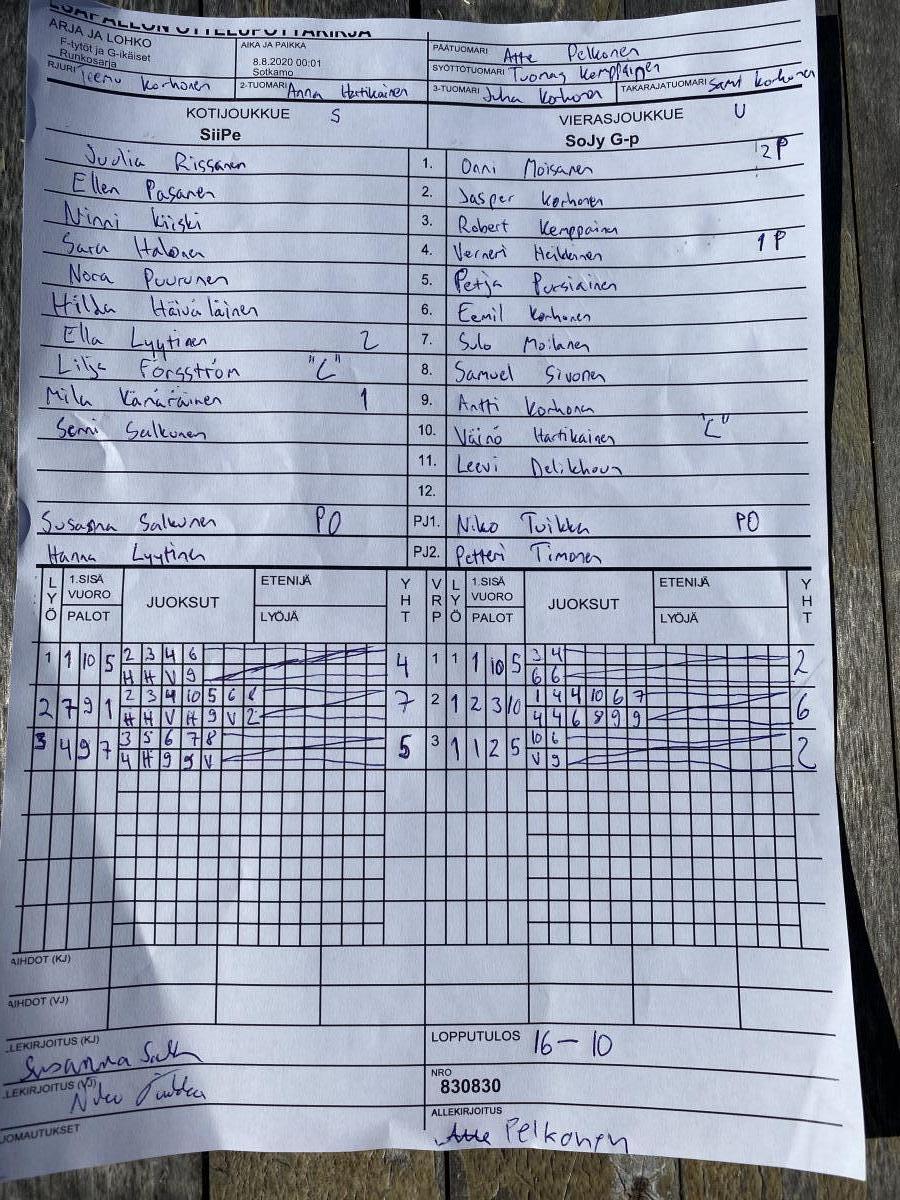 PÖYTÄKIRJA
ARJA JA LOHKO
F-tytöt ja G-ikäiset
Runkosarja
AIKA JA PAIKKA
8.8.2020 00:01
Sotkamo
PÄÄTUOMARI Atte Pelkonen
SYÖTTÖTUOMARI Tuomas Kemppainen
RJURI Teemu Korhonen
2-TUOMARI Anna Hartikainen
3-TUOMARI Juha Korhonen
TAKARAJATUOMARI Sami Korhonen
KOTIJOUKKUE S
SiiPe
VIERASJOUKKUE U
SoJy G-p
Julia Rissanen 1. Onni Moisanen 2P
Ellen Pasanen 2. Jasper Korhonen
Ninni Kiiski 3. Robert Kemppainen
Sara Halonen 4. Verneri Heikkinen 1P
Nora Puurunen 5. Petja Pursiainen
Hilda Häiväläinen 6. Eemil Korhonen
Ella Lyytinen 2 7. Sulo Moilanen
Lilja Forsström "C" 8. Samuel Sivonen
Mila Känäräinen 1 9. Antti Korhonen
Senni Salkunen 10. Väinö Hartikainen "C"
11. Leevi Delikhoun
12.
Susanna Salkunen PO PJ1. Niko Tuikka PO
Hanna Lyytinen PJ2. Petteri Timonen
LYÖ 1.SISÄ VUORO PALOT JUOKSUT ETENIJÄ LYÖJÄ YHT VRP LYÖ 1.SISÄ VUORO PALOT JUOKSUT ETENIJÄ LYÖJÄ YHT
1 1 10 5 2 3 4 6 4 1 1 1 10 5 3 4 2
H H V 9 6 6
2 7 9 1 2 3 4 10 5 6 8 7 2 1 2 3 10 1 4 4 10 6 7 6
H H V H 9 V 2 4 4 6 8 9 9
3 4 9 7 3 5 6 7 8 5 3 1 1 2 5 10 6 2
4 H 9 9 V V 9
AIHDOT (KJ)
AIHDOT (VJ)
LEKIRJOITUS (KJ)
Susanna Salk
LOPPUTULOS 16 – 10
LEKIRJOITUS (VJ)
Niko Tuikka
NRO
830830
ALLEKIRJOITUS
Atte Pelkonen
UOMAUTUKSET